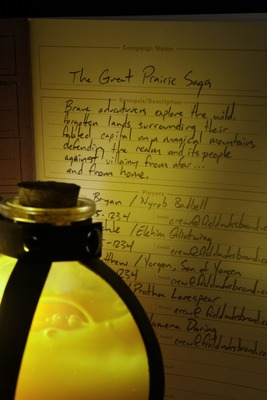 Campaign Name
The Great Prairie Saga
Synopsis/Description
Brave adventurers explore the wild
forgotten lands surrounding their
fabled capital on a magical mountain,
defending the realm and its people
against villainy from afar...
and from home.
Players
Bryan / Nyrob Bedbell
-1234 crew@fieldnotesbrand.co
-1234 crew@fieldnotesbrand.
thew / Yorgen, Son of Yorgen
1234 crew@fieldnotesbrand.c
Prothan Lorespear
crew@fieldnotesbrand.
mena Daring
crew@fieldnotesbrand.co